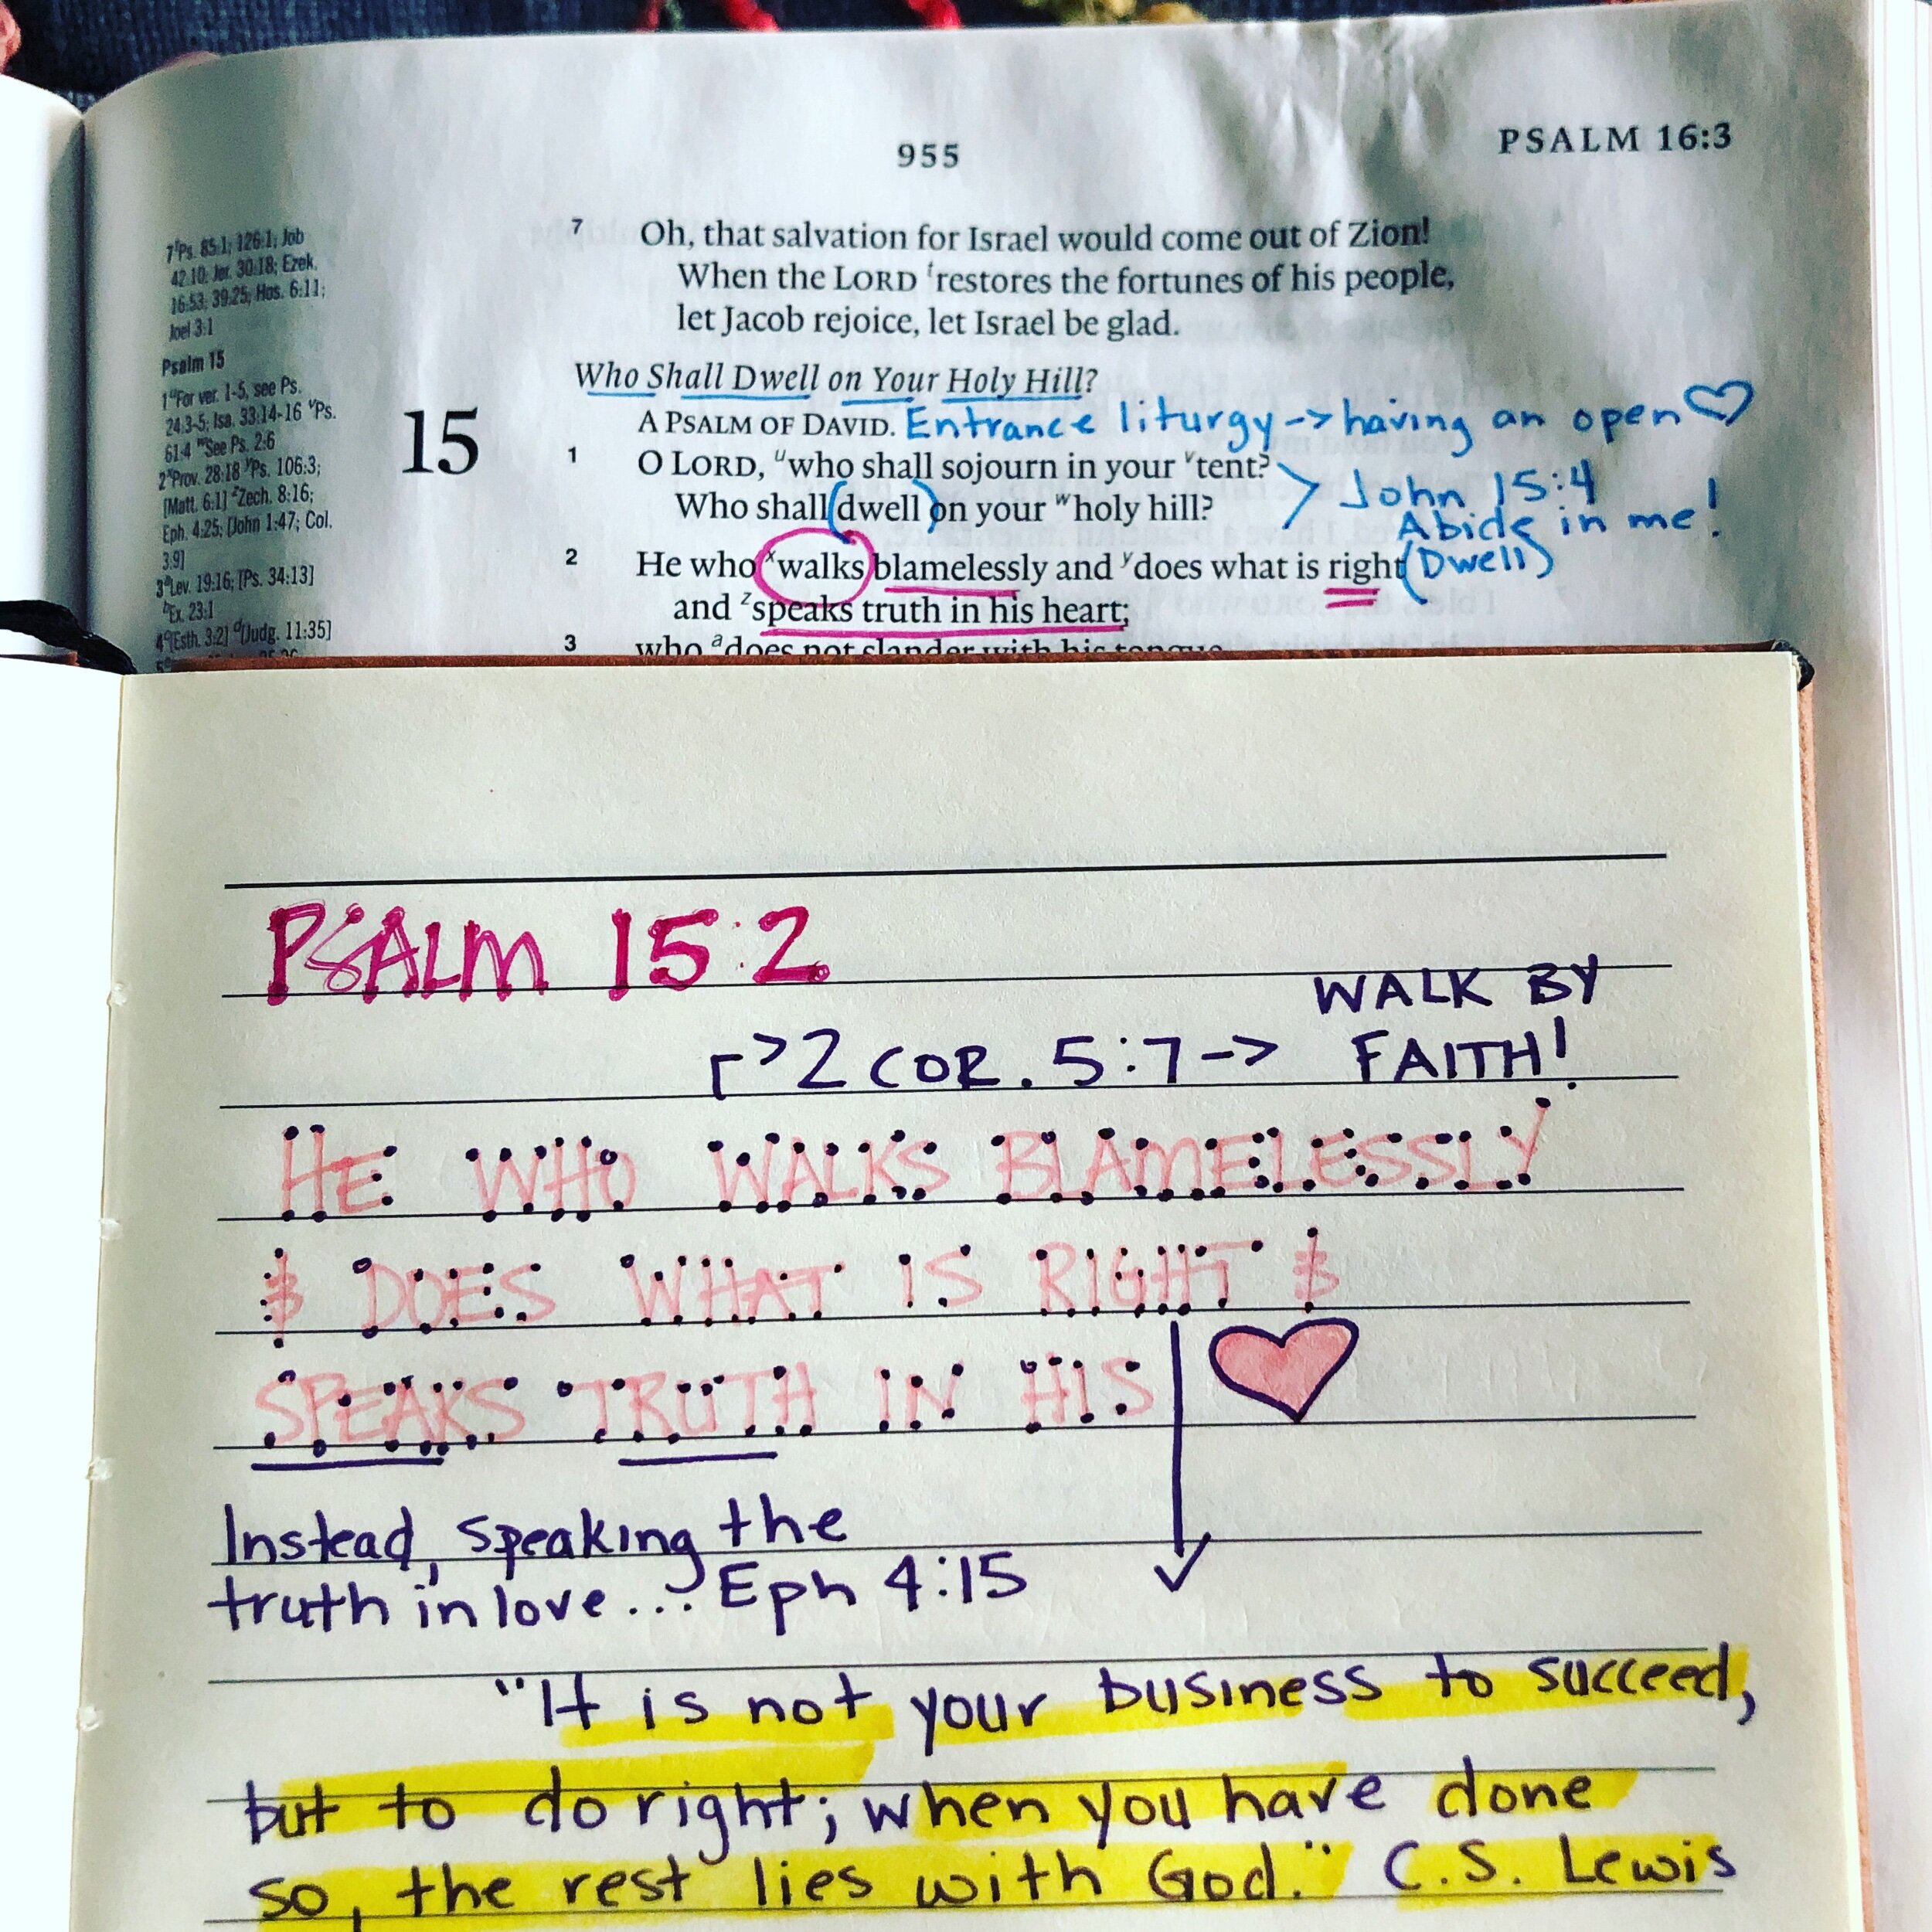 955
PSALM 16:3
7 Oh, that salvation for Israel would come out of Zion!
When the LORD restores the fortunes of his people,
let Jacob rejoice, let Israel be glad.
Who Shall Dwell on Your Holy Hill?
15
A PSALM OF DAVID. Entrance liturgy -> having an open ♡
1 O LORD, ᵘwho shall sojourn in your ᵛtent?
Who shall (dwell) on your ʷholy hill?
> John 15:4
Abide in me!
(Dwell)
2 He who ˣwalks blamelessly and ʸdoes what is right
and ᶻspeaks truth in his heart;
3 who ᵃdoes not slander with his tongue
7 Ps. 85:1; 126:1; Job
42:10; Jer. 30:18; Ezek.
16:53; 39:25; Hos. 6:11;
Joel 3:1
Psalm 15
1 ᵘFor ver. 1-5, see Ps.
24:3-5; Isa. 33:14-16 ᵛPs.
61:4 ʷSee Ps. 2:6
2 ˣProv. 28:18 ʸPs. 106:3;
[Matt. 6:1] ᶻZech. 8:16;
Eph. 4:25; [John 1:47; Col.
3:9]
3 ᵃLev. 19:16; [Ps. 34:13]
ᵇEx. 23:1
4 ᶜ[Esth. 3:2] ᵈ[Judg. 11:35]
PSALM 15:2
WALK BY
->2 COR. 5:7 -> FAITH!
HE WHO WALKS BLAMELESSLY
& DOES WHAT IS RIGHT &
SPEAKS TRUTH IN HIS ♡
Instead, speaking the
truth in love... Eph 4:15
"It is not your business to succeed,
but to do right; when you have done
so, the rest lies with God." C.S. Lewis